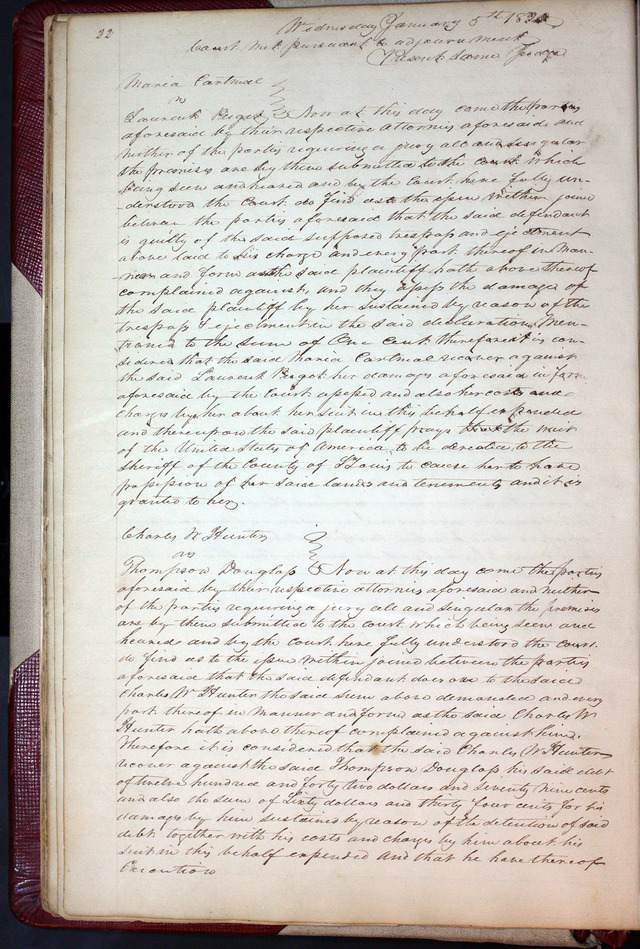 22
Wednesday January 5th 1820
Court met pursuant to adjournment
Present same Judge
Maria Cartmal
vs
Laurent Reget Now at this day come the parties
aforesaid by their respective attornies aforesaid and
neither of the parties requiring a jury all and singular
the premises are by them submitted to the court which
being seen and heard and by the Court here fully un-
derstood the Court do find as to the issue within joined
between the parties aforesaid that the said defendant
is guilty of the said supposed trespass and ejectment
above laid to his charge and every part thereof in man-
ner and form as the said plaintiff hath above thereof
complained against, and they assess the damages of
the said plaintiff by her sustained by reason of the
trespass & ejectment in the said declaration men-
tioned to the sum of One cent therefore it is con-
sidered that the said Maria Cartmal recover against
the said Laurent Reget her damages aforesaid in form
aforesaid by the Court assessed and also her costs and
charges by her about her suit in this behalf expended
and thereupon the said plaintiff prays the writ
of the United States of America to be directed to the
Sheriff of the County of St Louis to cause her to have
possession of her said lands and tenements and it is
granted to her.
Charles W Hunter
vs
Thompson Douglass Now at this day come the parties
aforesaid by their respective attornies aforesaid and neither
of the parties requiring a jury all and singular the premises
are by them submitted to the court which being seen and
heard and by the court here fully understood the court
do find as to the issue within joined between the parties
aforesaid that the said defendant does owe to the said
Charles W Hunter the said sum above demanded and every
part thereof in manner and form as the said Charles W
Hunter hath above thereof complained against him.
Therefore it is considered that the said Charles W Hunter
recover against the said Thompson Douglass his said debt
of twelve hundred and forty two dollars and seventy nine cents
and also the sum of Sixty dollars and thirty four cents for his
damages by him sustained by reason of the detention of said
debt together with his costs and charges by him about his
suit in this behalf expended and that he have thereof
Execution